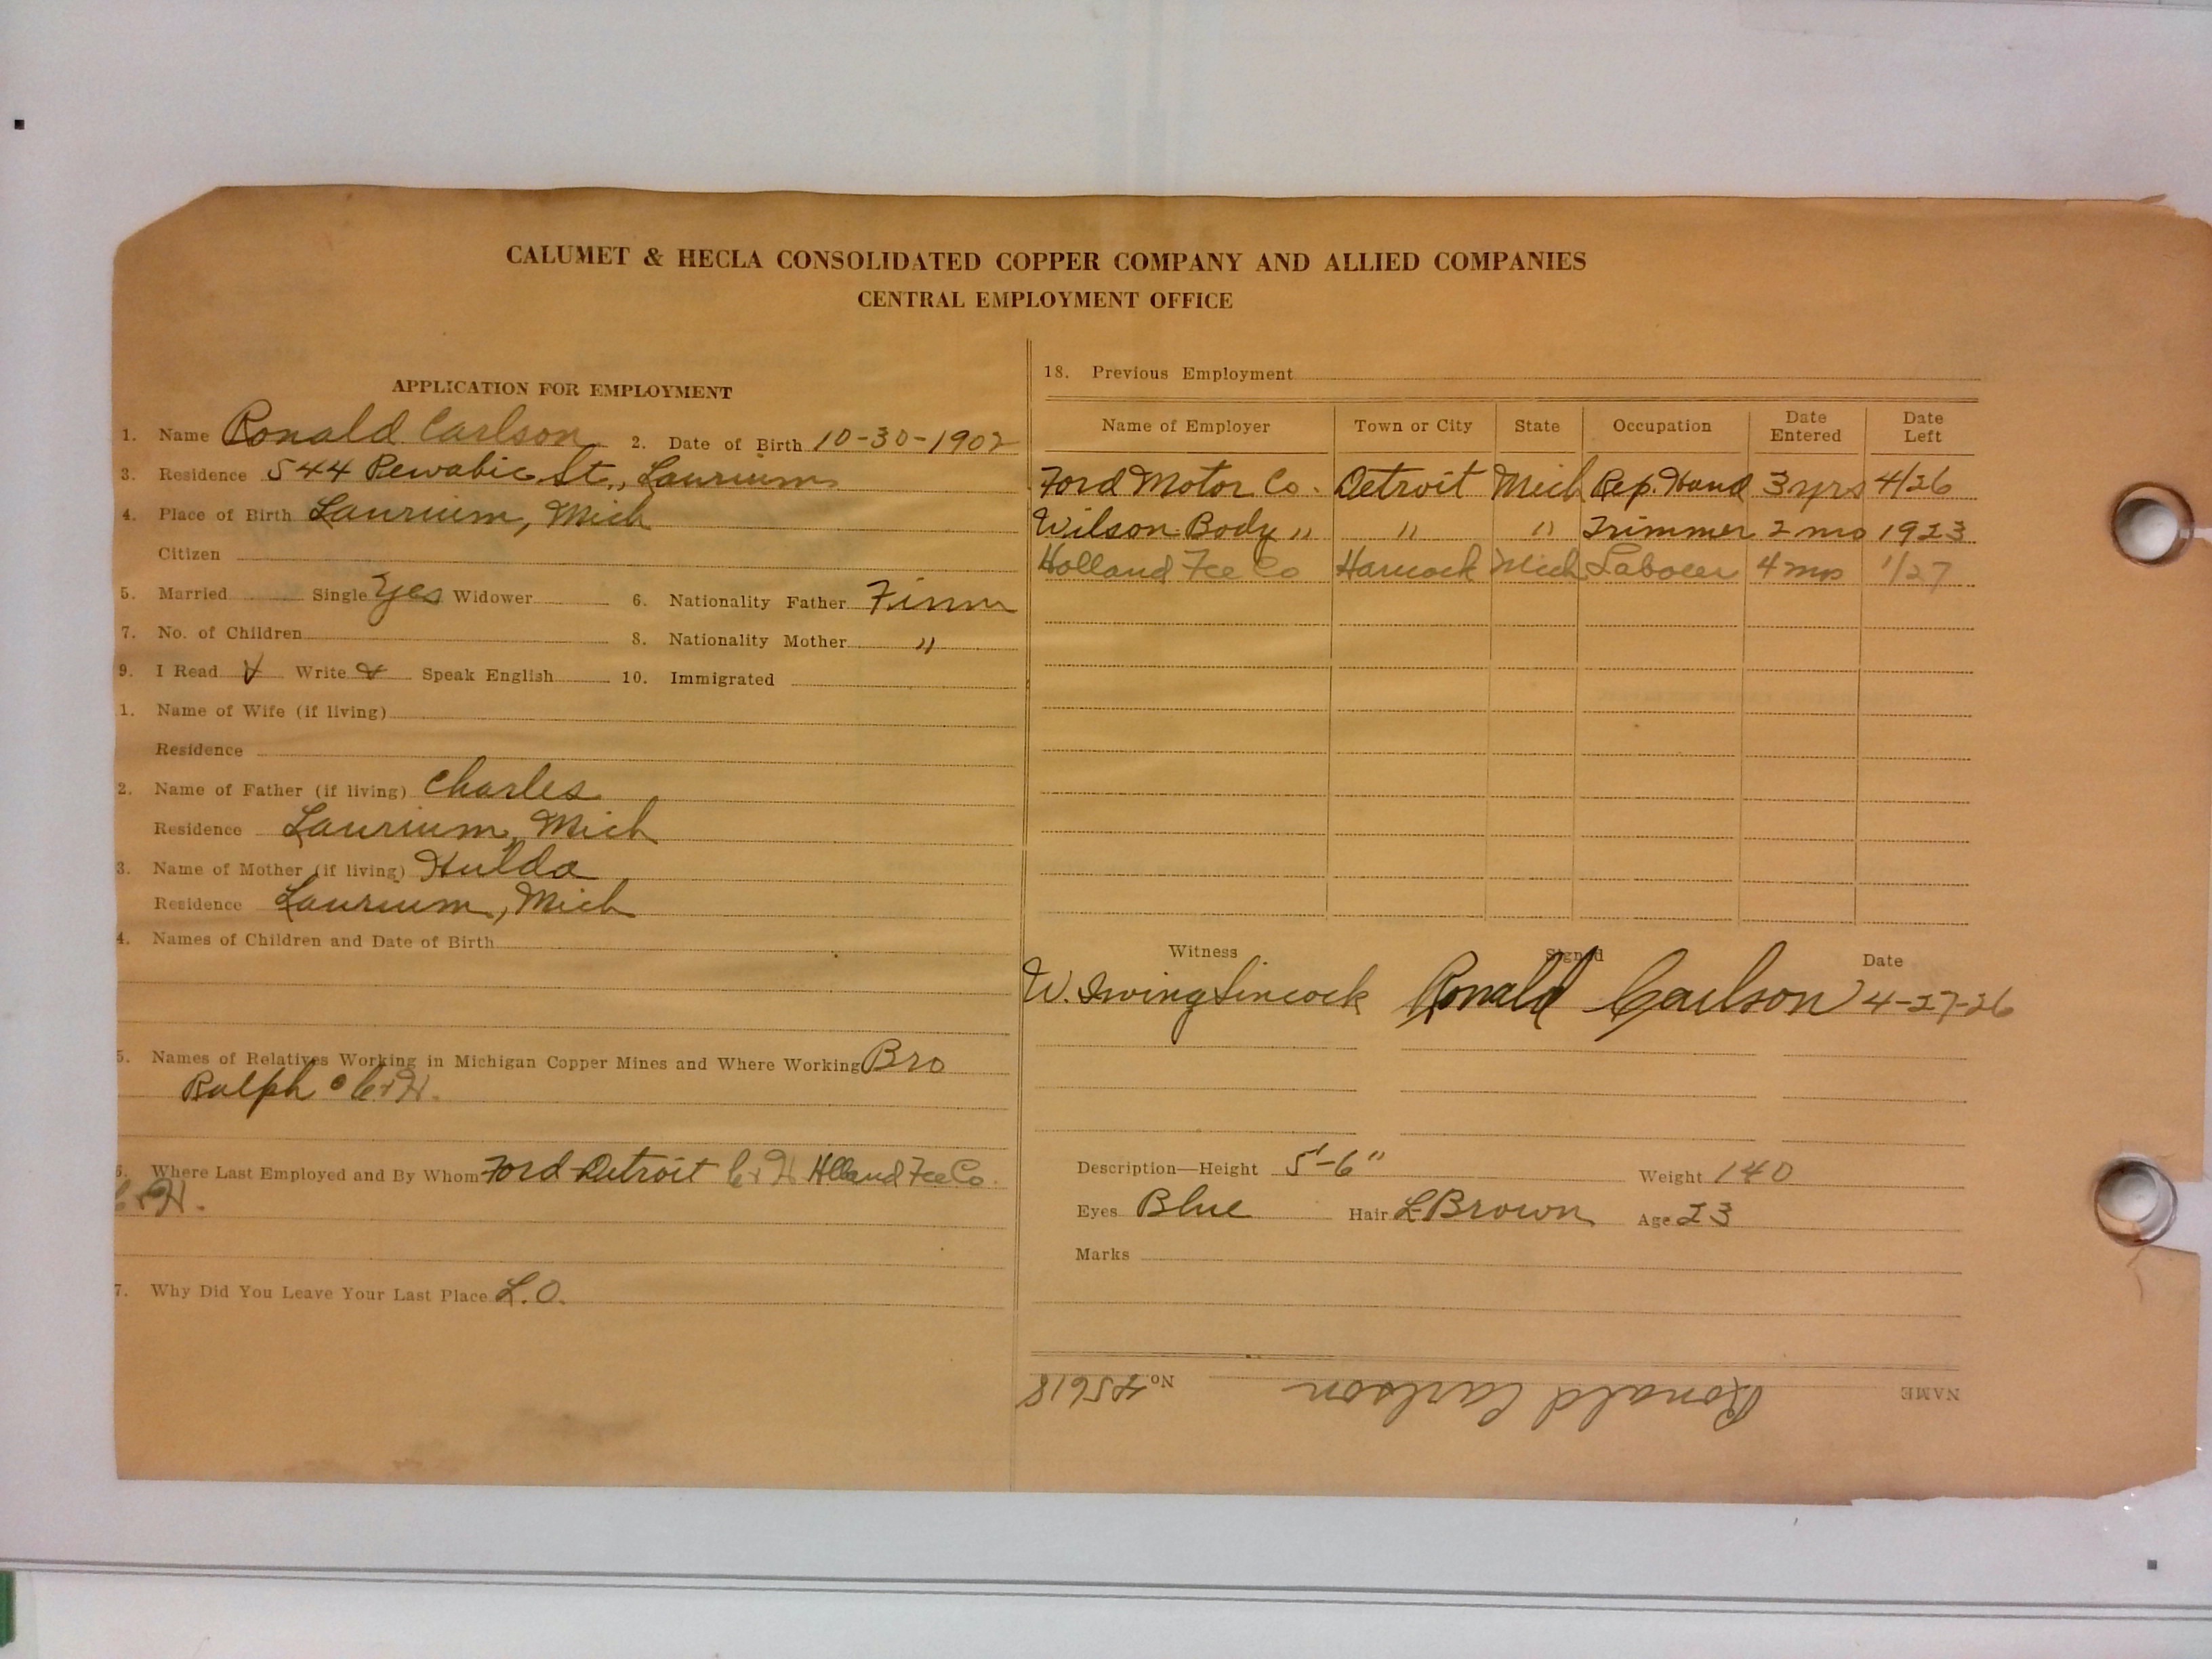 CALUMET & HECLA CONSOLIDATED COPPER COMPANY AND ALLIED COMPANIES
CENTRAL EMPLOYMENT OFFICE
APPLICATION FOR EMPLOYMENT
1. Name Ronald Carlson 2. Date of Birth 10-30-1902
3. Residence 544 Pewabic St., Laurium
4. Place of Birth Laurium, Mich
Citizen
5. Married Single Yes Widower 6. Nationality Father Finn
7. No. of Children 8. Nationality Mother "
9. I Read Write Speak English 10. Immigrated
1. Name of Wife (if living)
Residence
2. Name of Father (if living) Charles
Residence Laurium, Mich
3. Name of Mother (if living) Hulda
Residence Laurium, Mich
4. Names of Children and Date of Birth
5. Names of Relatives Working in Michigan Copper Mines and Where Working Bro
Ralph C & H.
6. Where Last Employed and By Whom Ford Detroit C & H Holland Fce Co.
C & H.
7. Why Did You Leave Your Last Place L.O.
18. Previous Employment
Name of Employer Town or City State Occupation Date Entered Date Left
Ford Motor Co. Detroit Mich Rep. Hand 3 yrs 4/26
Wilson Body " " " Trimmer 2 mo 1923
Holland Fce Co Hancock Mich Laborer 4 mo 1/27
Witness Signed Date
W. Irving Sincock Ronald Carlson 4-27-26
Description—Height 5'-6" Weight 140
Eyes Blue Hair L. Brown Age 23
Marks
NAME Ronald Carlson No. 45618